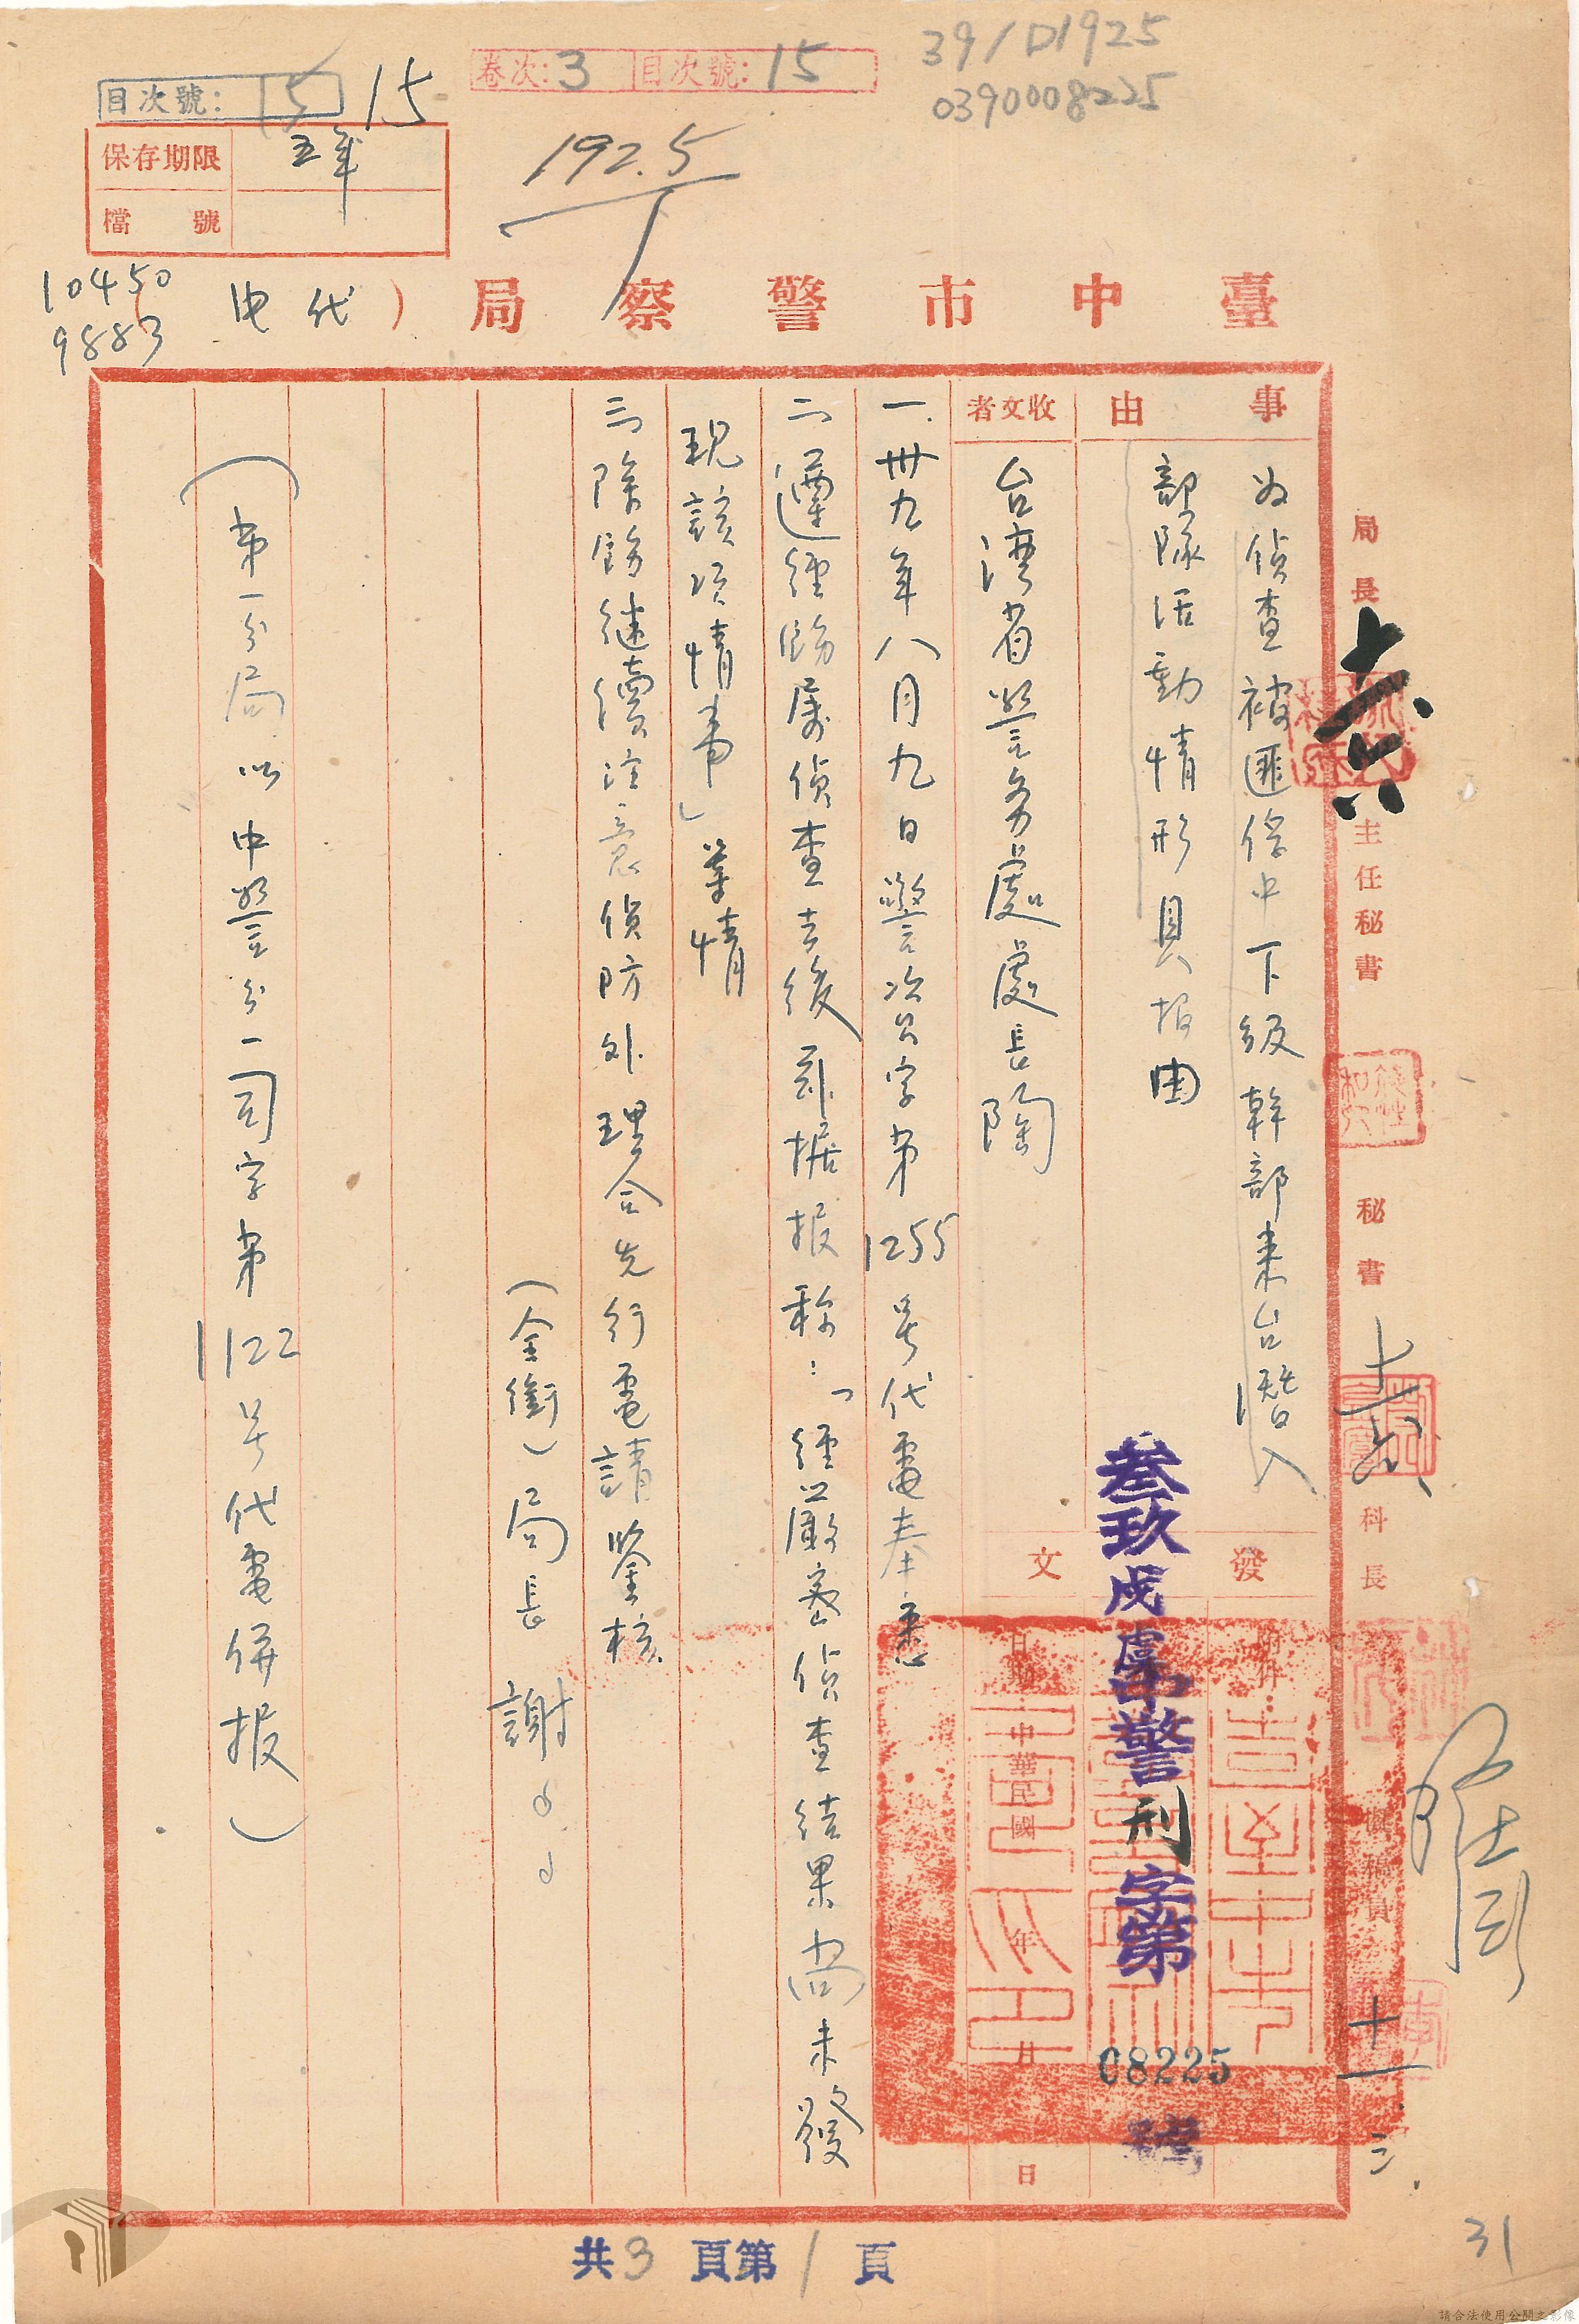 39/D1925
0390008225
卷次：3 目次號：15
目次號：15 15
保存期限 五年
檔號
192.5
10450
9883
臺中市警察局（代电
事由
為偵查被匪俘中下級幹部來台潛入
部隊活動情形具报由
收文者
台湾省警务處處長陶
發文
附件
叁玖戌虞中警刑字第
08225
號
日期 中華民國 年 月 日
一、卅九年八月九日警次公字第1255号代電奉悉
二、遵經飭属偵查去後茲据报称：「經嚴密偵查結果尚未發
現該項情事」等情
三、除飭継續注意偵防外理合先行電請鑒核
（全銜）局長 謝
（第一分局以中警分一司字第1122号代電併报）
局長
主任秘書
秘書
科長
擬稿員
十一六
十一六
十一.三.
共3頁第1頁
31
請合法使用公開之影像